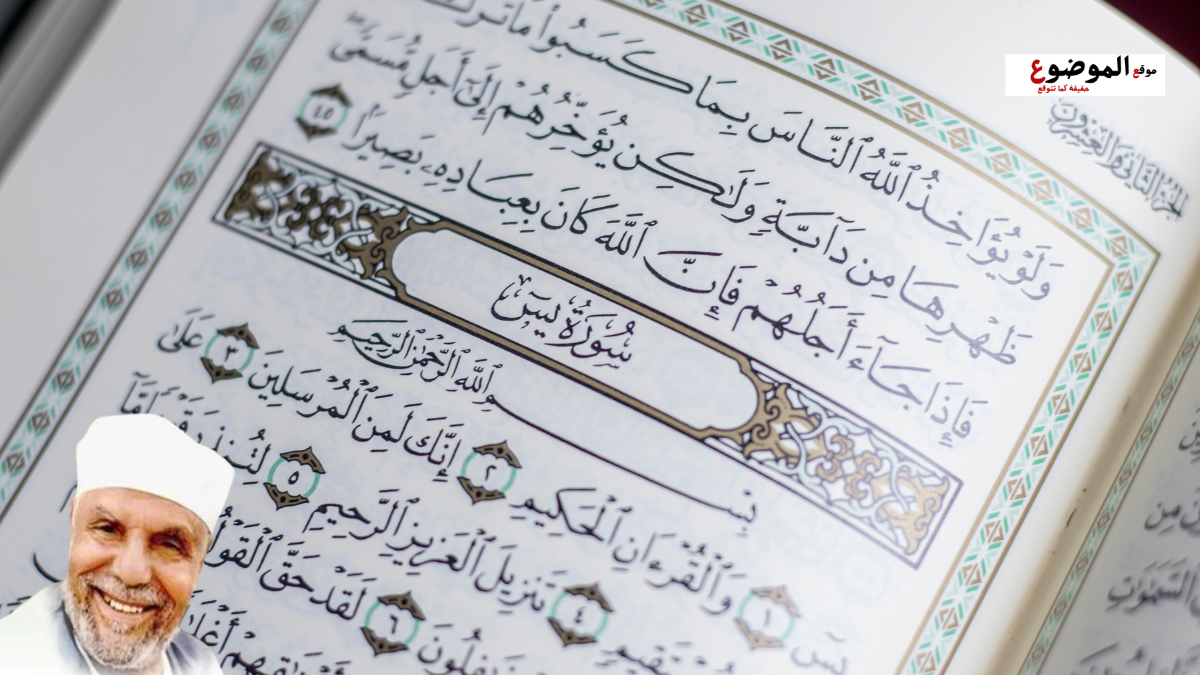 موقع الموضوع
حقيقة كما تتوقع
الجزء الثاني والعشرون
وَلَوْ يُؤَاخِذُ ٱللَّهُ ٱلنَّاسَ بِمَا كَسَبُوا۟ مَا تَرَكَ
ظَهْرِهَا مِن دَآبَّةٍ وَلَـٰكِن يُؤَخِّرُهُمْ إِلَىٰٓ أَجَلٍ مُّسَمًّى
فَإِذَا جَآءَ أَجَلُهُمْ فَإِنَّ ٱللَّهَ كَانَ بِعِبَادِهِۦ بَصِيرًۢا ٤٥
سُورَةُ يسٓ
بِسْمِ ٱللَّهِ ٱلرَّحْمَـٰنِ ٱلرَّحِيمِ
يسٓ ١ وَٱلْقُرْءَانِ ٱلْحَكِيمِ ٢ إِنَّكَ لَمِنَ ٱلْمُرْسَلِينَ ٣ عَلَىٰ
٤ تَنزِيلَ ٱلْعَزِيزِ ٱلرَّحِيمِ ٥ لِتُنذِرَ
٦ لَقَدْ حَقَّ ٱلْقَوْلُ